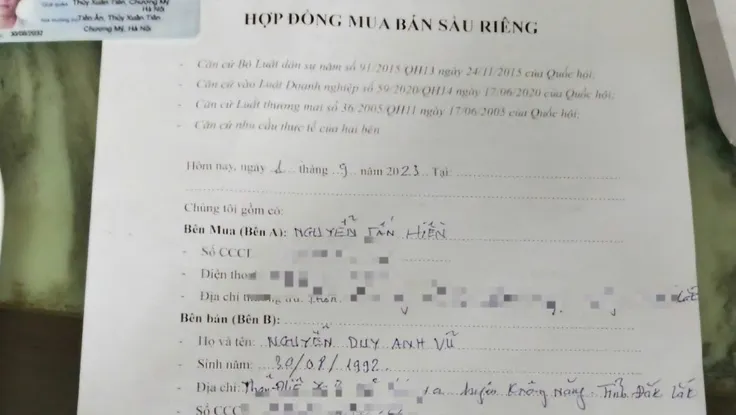 Quê quán: Thủy Xuân Tiên, Chương Mỹ
Hà Nội
Tiên Ân, Thủy Xuân Tiên
30/08/2032
Chương Mỹ, Hà Nội
HỢP ĐỒNG MUA BÁN SẦU RIÊNG
- Căn cứ Bộ Luật dân sự năm số 91/2015/QH13 ngày 24/11/2015 của Quốc hội;
- Căn cứ vào Luật Doanh nghiệp số 59/2020/QH14 ngày 17/06/2020 của Quốc hội;
- Căn cứ Luật thương mai số 36/2005/QH11 ngày 17/06/2005 của Quốc hội;
- Căn cứ nhu cầu thực tế của hai bên
Hôm nay, ngày 1 tháng 9 năm 2023 Tại:
Chúng tôi gồm có:
Bên Mua (Bên A): NGUYỄN TẤN HIỀN
- Số CCCD
- Điện thoại
- Địa chỉ
Bên bán (Bên B):
- Họ và tên: NGUYỄN DUY ANH VŨ
- Sinh năm: 30/08/1992
- Địa chỉ: huyện Krông Năng, Tỉnh Đắk Lắk
- Số CCC